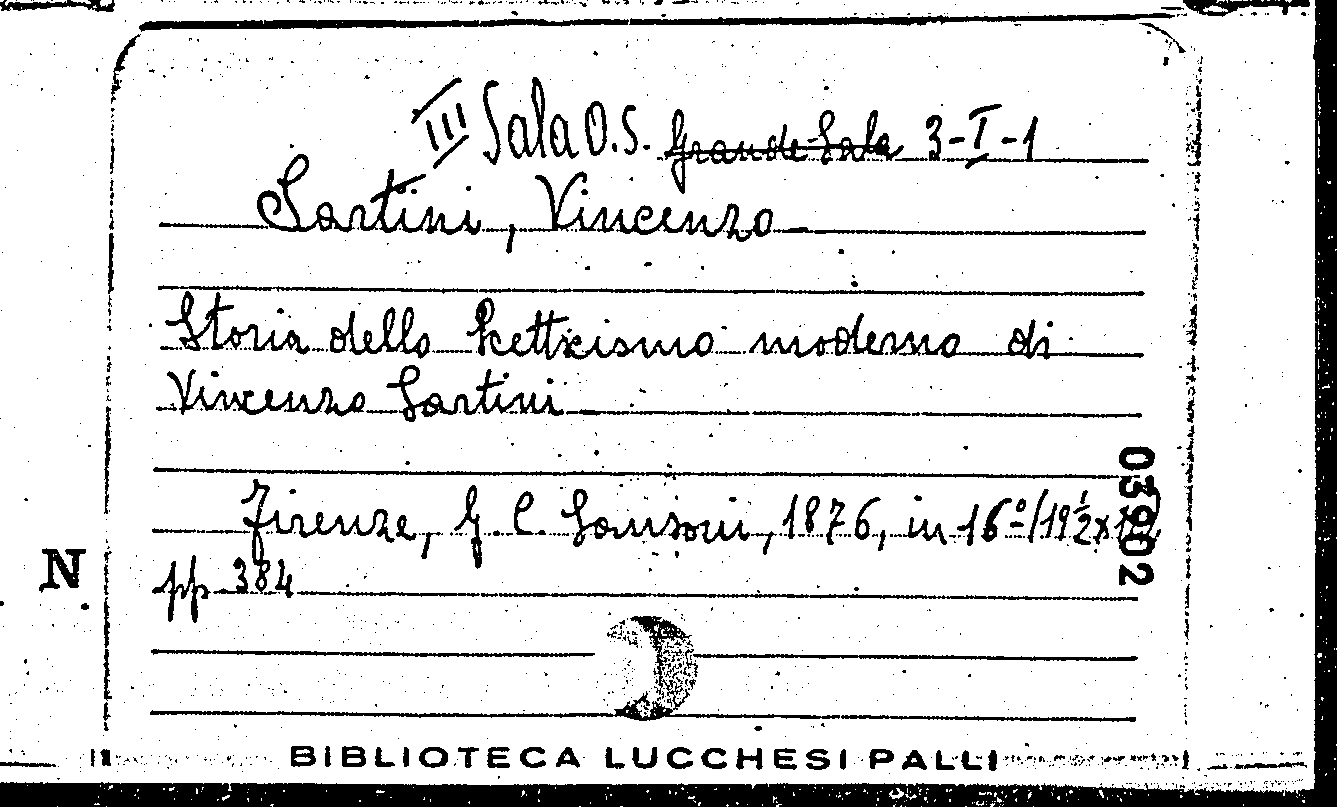 III Sala O.S. Grande Sala 3-I-1
Sartini, Vincenzo
Storia dello Scetticismo moderno di
Vincenzo Sartini
Firenze, G. C. Sansoni, 1876, in 16º/19½x12
pp 384
03902
N
BIBLIOTECA LUCCHESI PALLI